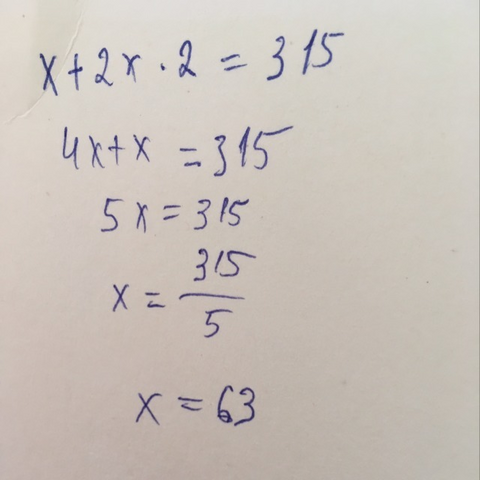 x+2x·2=315
4x+x=315
5x=315
x=315/5
x=63